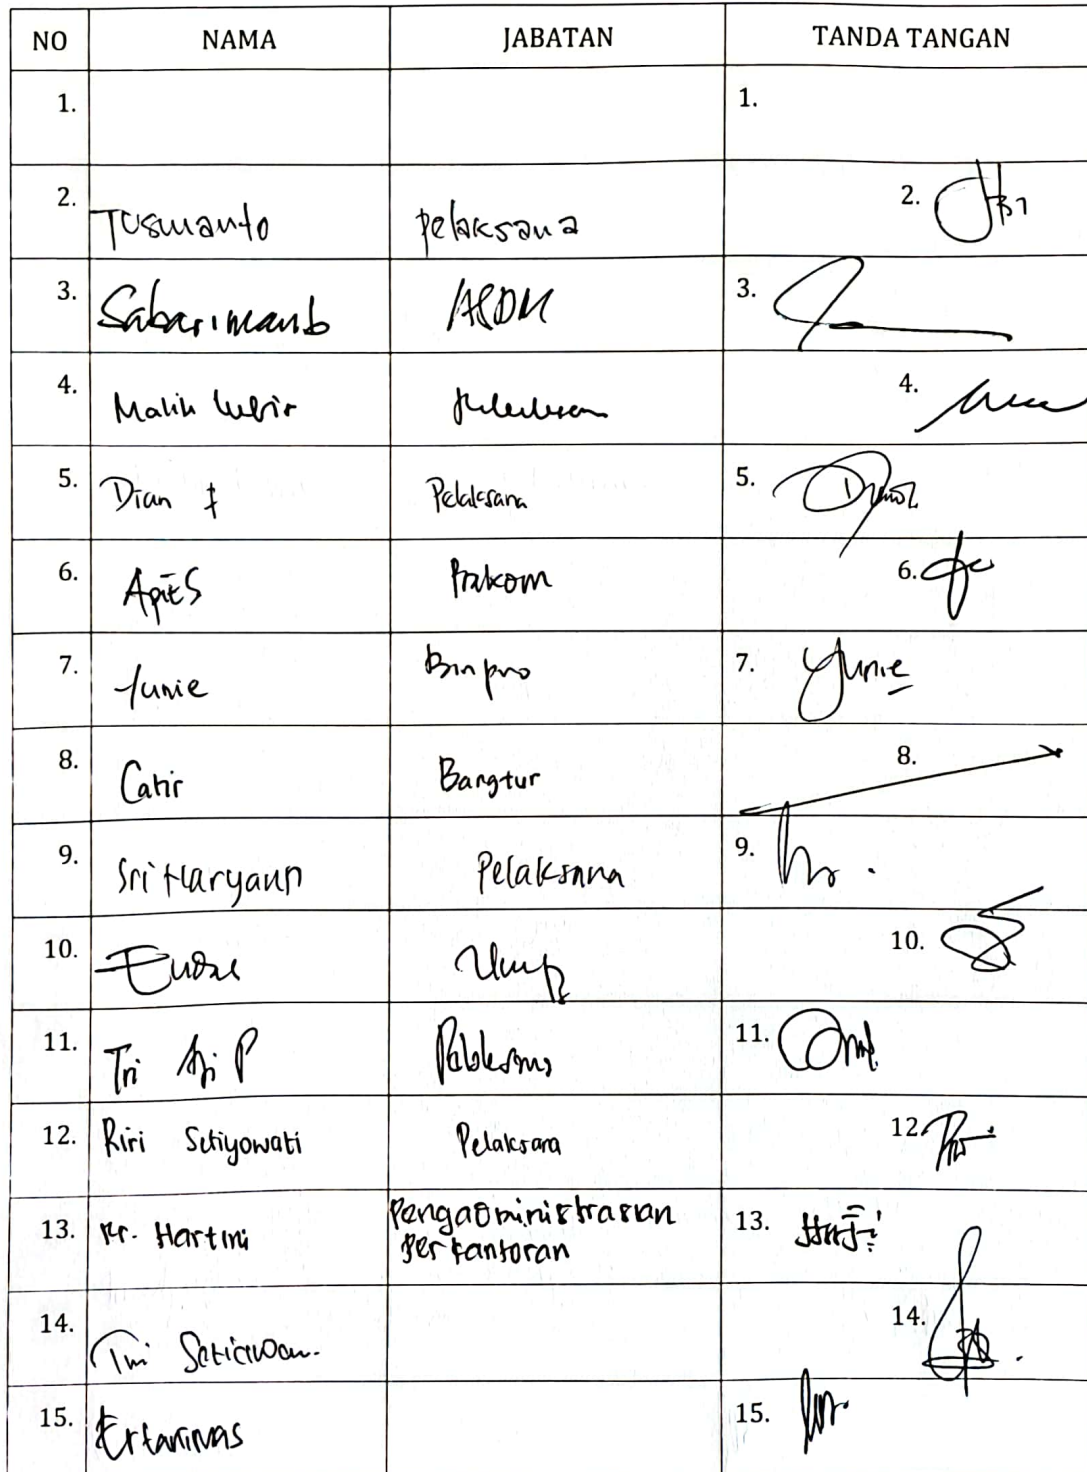 NO NAMA JABATAN TANDA TANGAN
1. 1.
2. Tusmanto Pelaksana 2.
3. Sabarimanto 3.
4. Malik 4.
5. Dian Pelaksana 5.
6. Prakom 6.
7. Yunie Binpro 7. Yunie
8. Catir Bangtur 8.
9. Sri Haryanti Pelaksana 9.
10. 10.
11. Tri Aji P Pelaksana 11.
12. Riri Setiyowati Pelaksana 12.
13. Hartini Pengadministrasian 13.
Perkantoran
14. Tri Setiawan. 14.
15. 15.